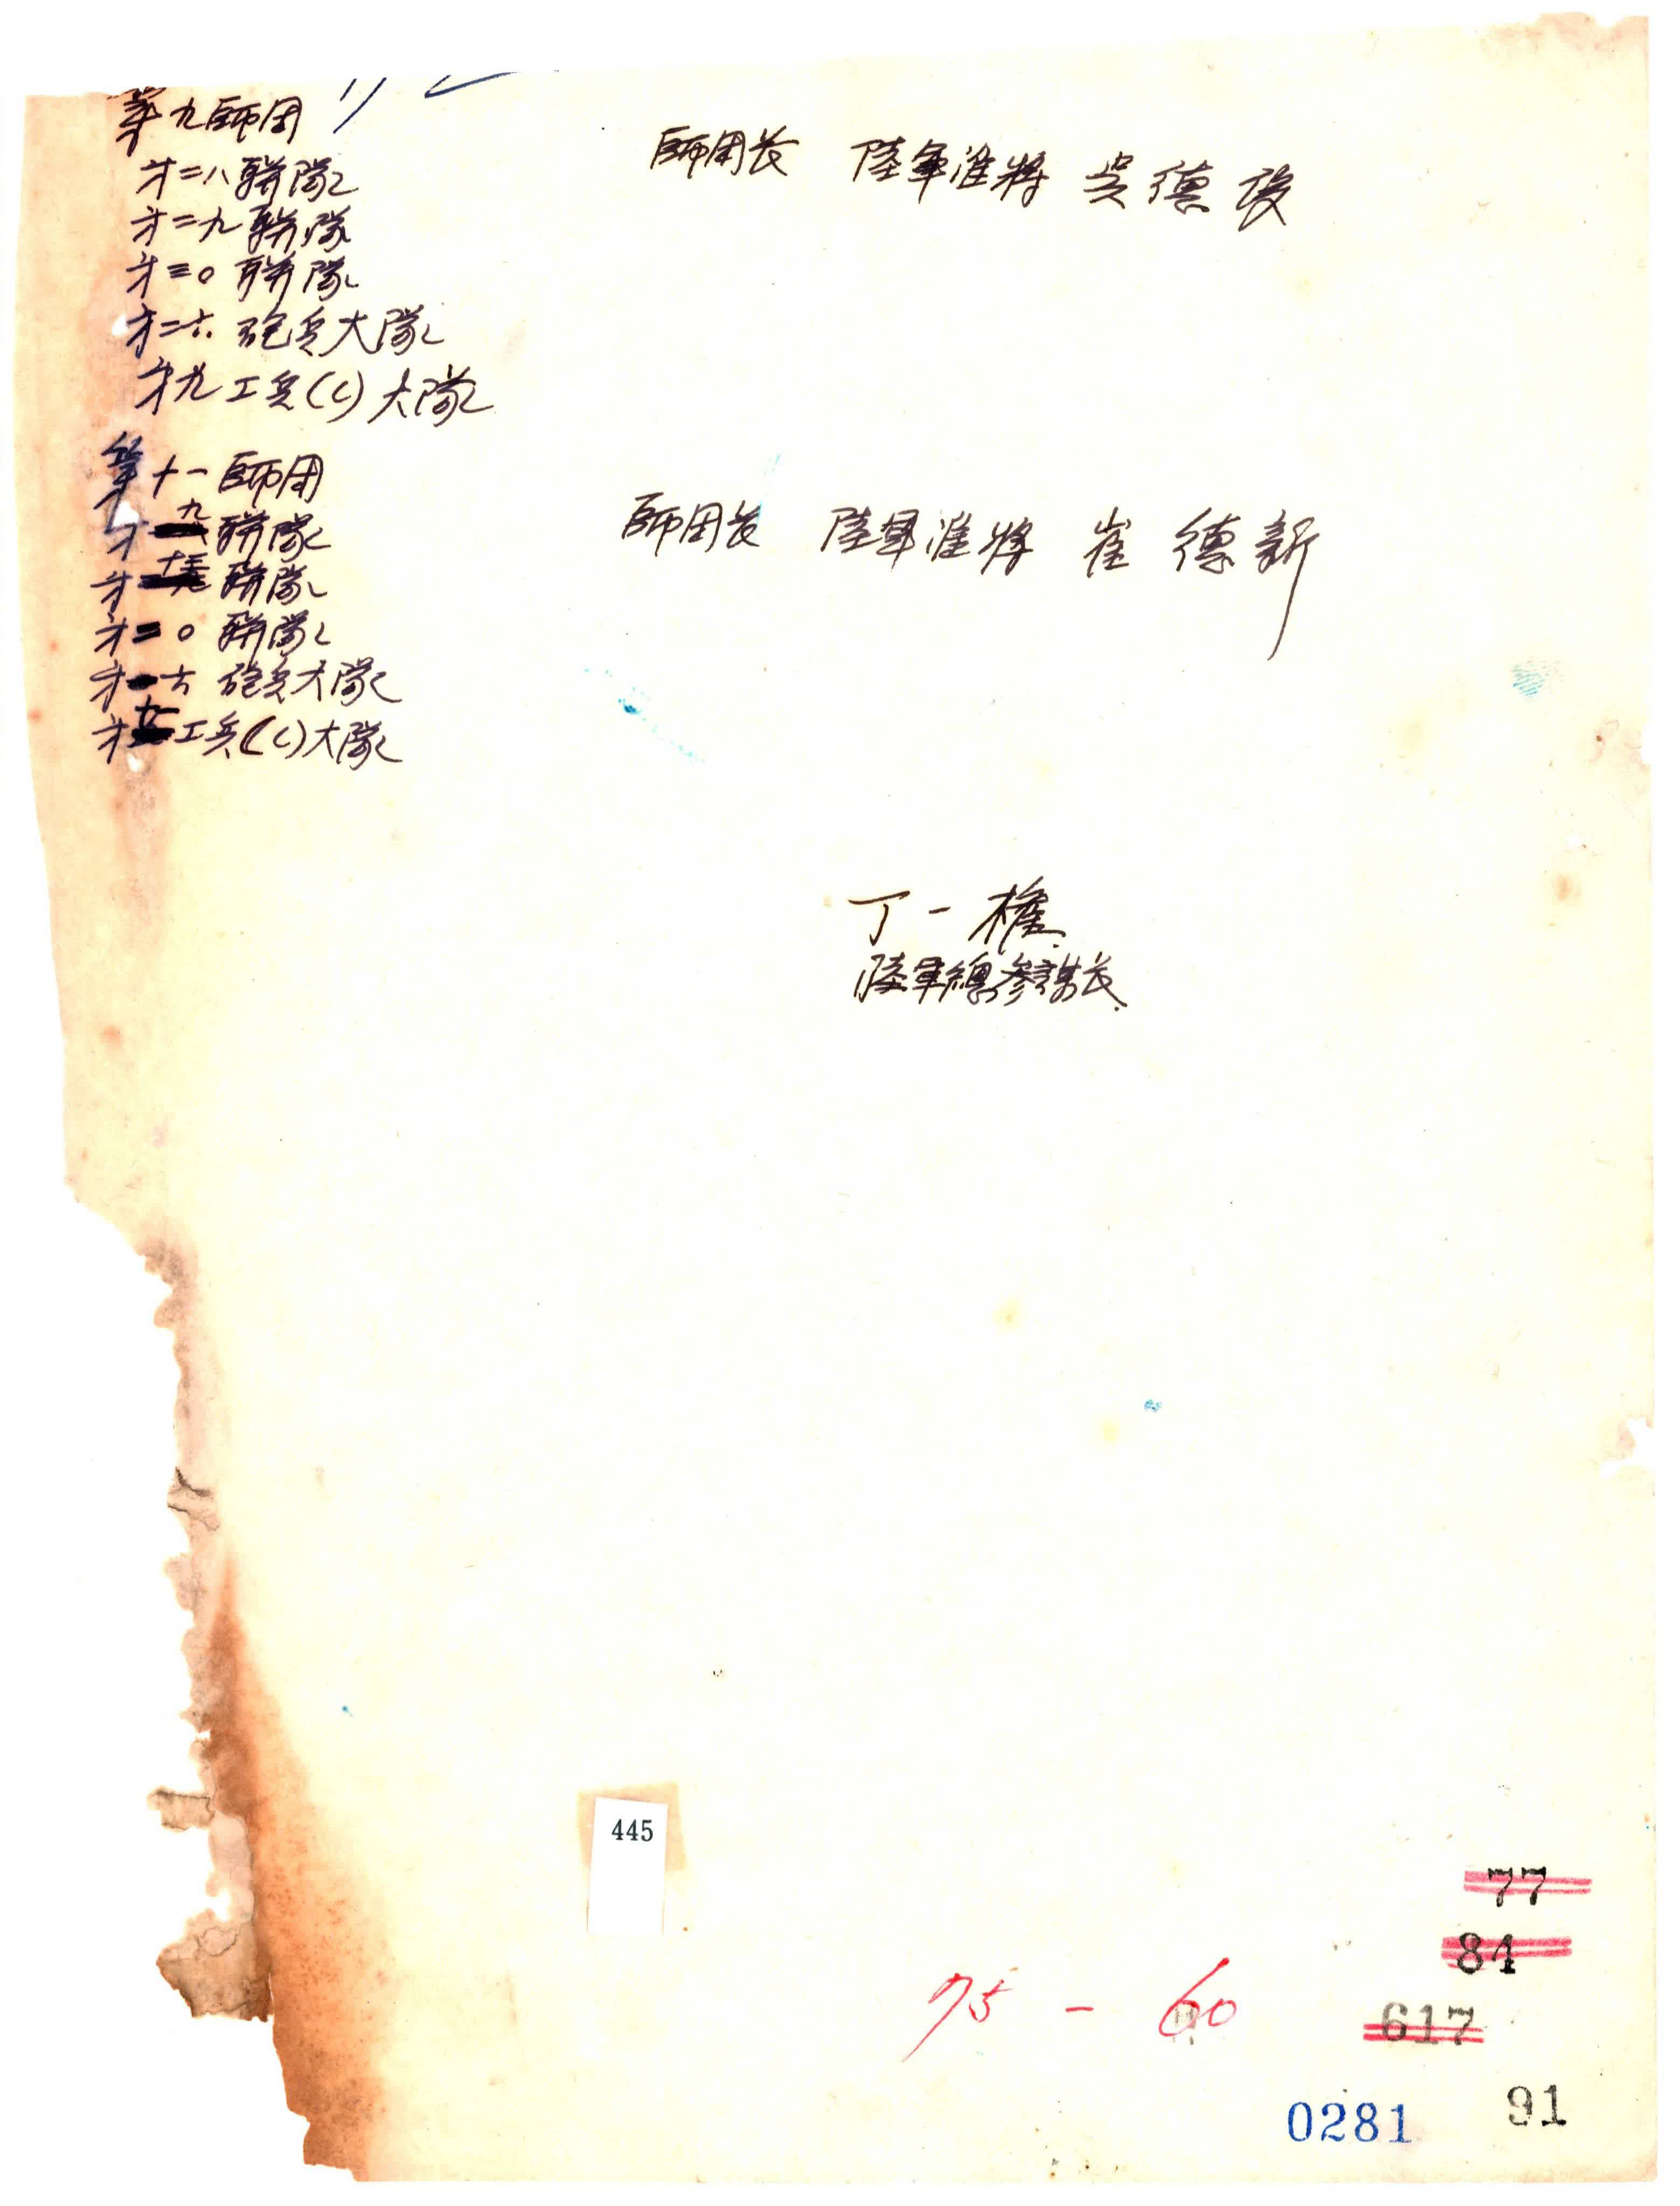 第九師団 師団長 陸軍准將 吳德俊
才二八聯隊
才二九聯隊
才三〇聯隊
才二六砲兵大隊
才九工兵(C)大隊
第十一師団 師団長 陸軍准將 崔德新
才九聯隊
才十三聯隊
才二〇聯隊
才一六砲兵大隊
工兵(C)大隊
丁一權
陸軍總參謀長
445
77
84
75-60
617
0281
91